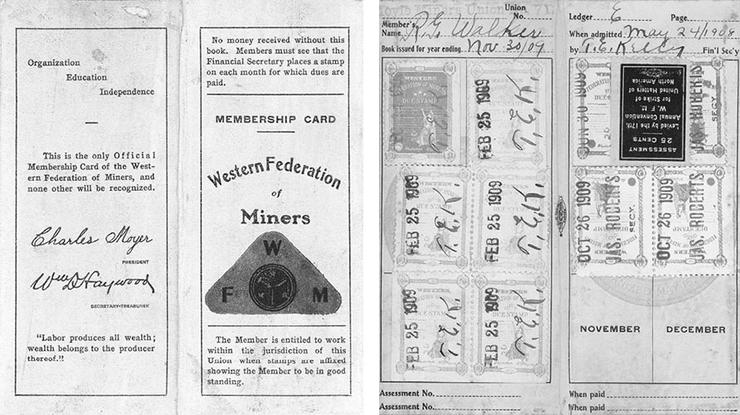 Organization
Education
Independence
This is the only Official
Membership Card of the West-
ern Federation of Miners, and
none other will be recognized.
Charles Moyer
PRESIDENT
Wm D Haywood
SECRETARY-TREASURER
"Labor produces all wealth;
wealth belongs to the producer
thereof."
No money received without this
book. Members must see that the
Financial Secretary places a stamp
on each month for which dues are
paid.
MEMBERSHIP CARD
Western Federation
of
Miners
W
F M
The Member is entitled to work
within the jurisdiction of this
Union when stamps are affixed
showing the Member to be in good
standing.
Union
No.
Member's
Name R G Walker
Book issued for year ending Nov 30/09
WESTERN
DUE STAMP
FEB 25 1909
T.E.K.
FEB 25 1909
T.E.K.
FEB 25 1909
T.E.K.
FEB 25 1909
T.E.K.
FEB 25 1909
T.E.K.
Assessment No.
Assessment No.
Ledger E Page
When admitted May 24/1908
by T.E. Kelly Fin'l Sec'y
JUN 30 1909
ASSESSMENT
25 CENTS
Levied by the 17th
Annual Convention
W. F. M.
for Strike of
United Hatters of
North America
JAS. ROBERTS
SECY.
OCT 26 1909
JAS. ROBERTS
SECY.
OCT 26 1909
JAS. ROBERTS
SECY.
NOVEMBER DECEMBER
When paid
When paid